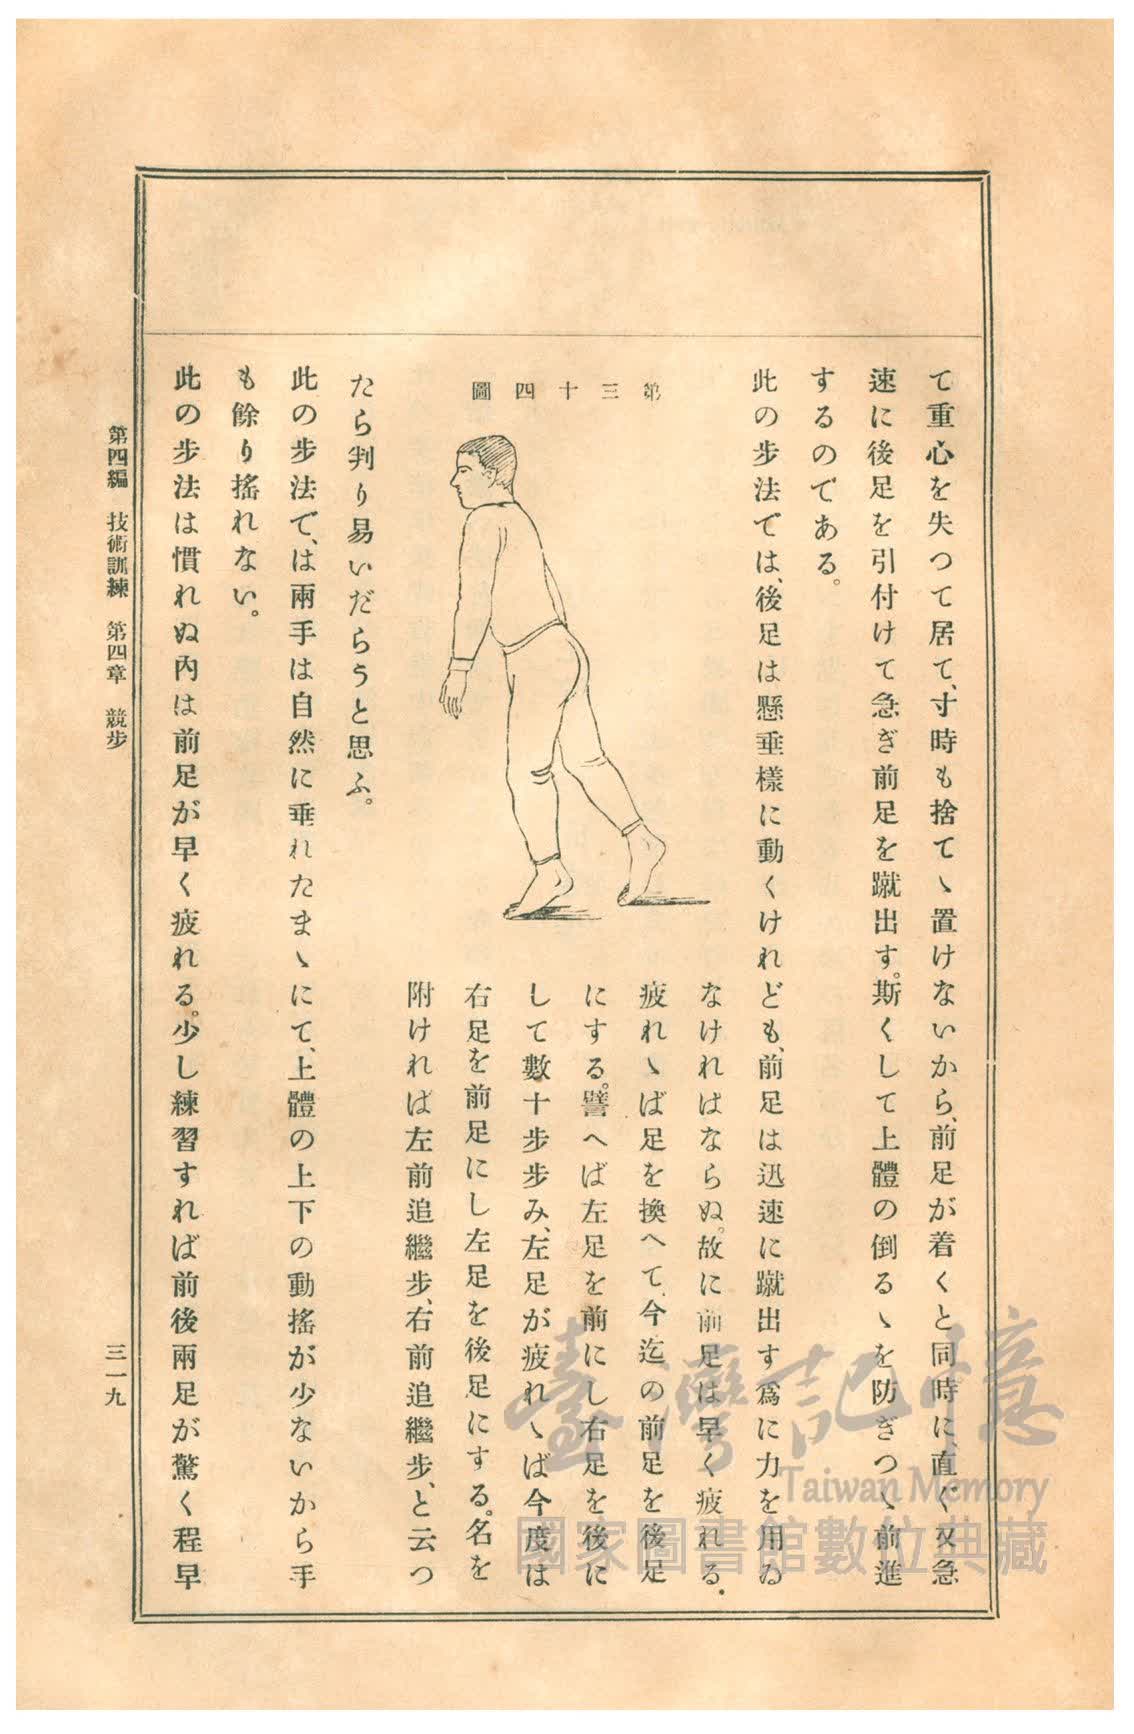 て重心を失つて居て、寸時も捨てゝ置けないから、前足が着くと同時に、直ぐ又急
速に後足を引付けて急ぎ前足を蹴出す。斯くして上體の倒るゝを防ぎつゝ前進
するのである。
此の步法では、後足は懸垂樣に動くけれども、前足は迅速に蹴出す爲に力を用ゐ
なければならぬ。故に前足は早く疲れる。
疲れゝば足を換へて、今迄の前足を後足
にする。譬へば左足を前にし右足を後に
して數十步步み、左足が疲れゝば今度は
右足を前足にし左足を後足にする。名を
附ければ左前追繼步、右前追繼步、と云つ
第三十四圖
たら判り易いだらうと思ふ。
此の步法で、は兩手は自然に垂れたまゝにて、上體の上下の動搖が少ないから手
も餘り搖れない。
此の步法は慣れぬ內は前足が早く疲れる。少し練習すれば前後兩足が驚く程早
第四編　技術訓練　第四章　競步
三一九
臺灣記憶
Taiwan Memory
國家圖書館數位典藏